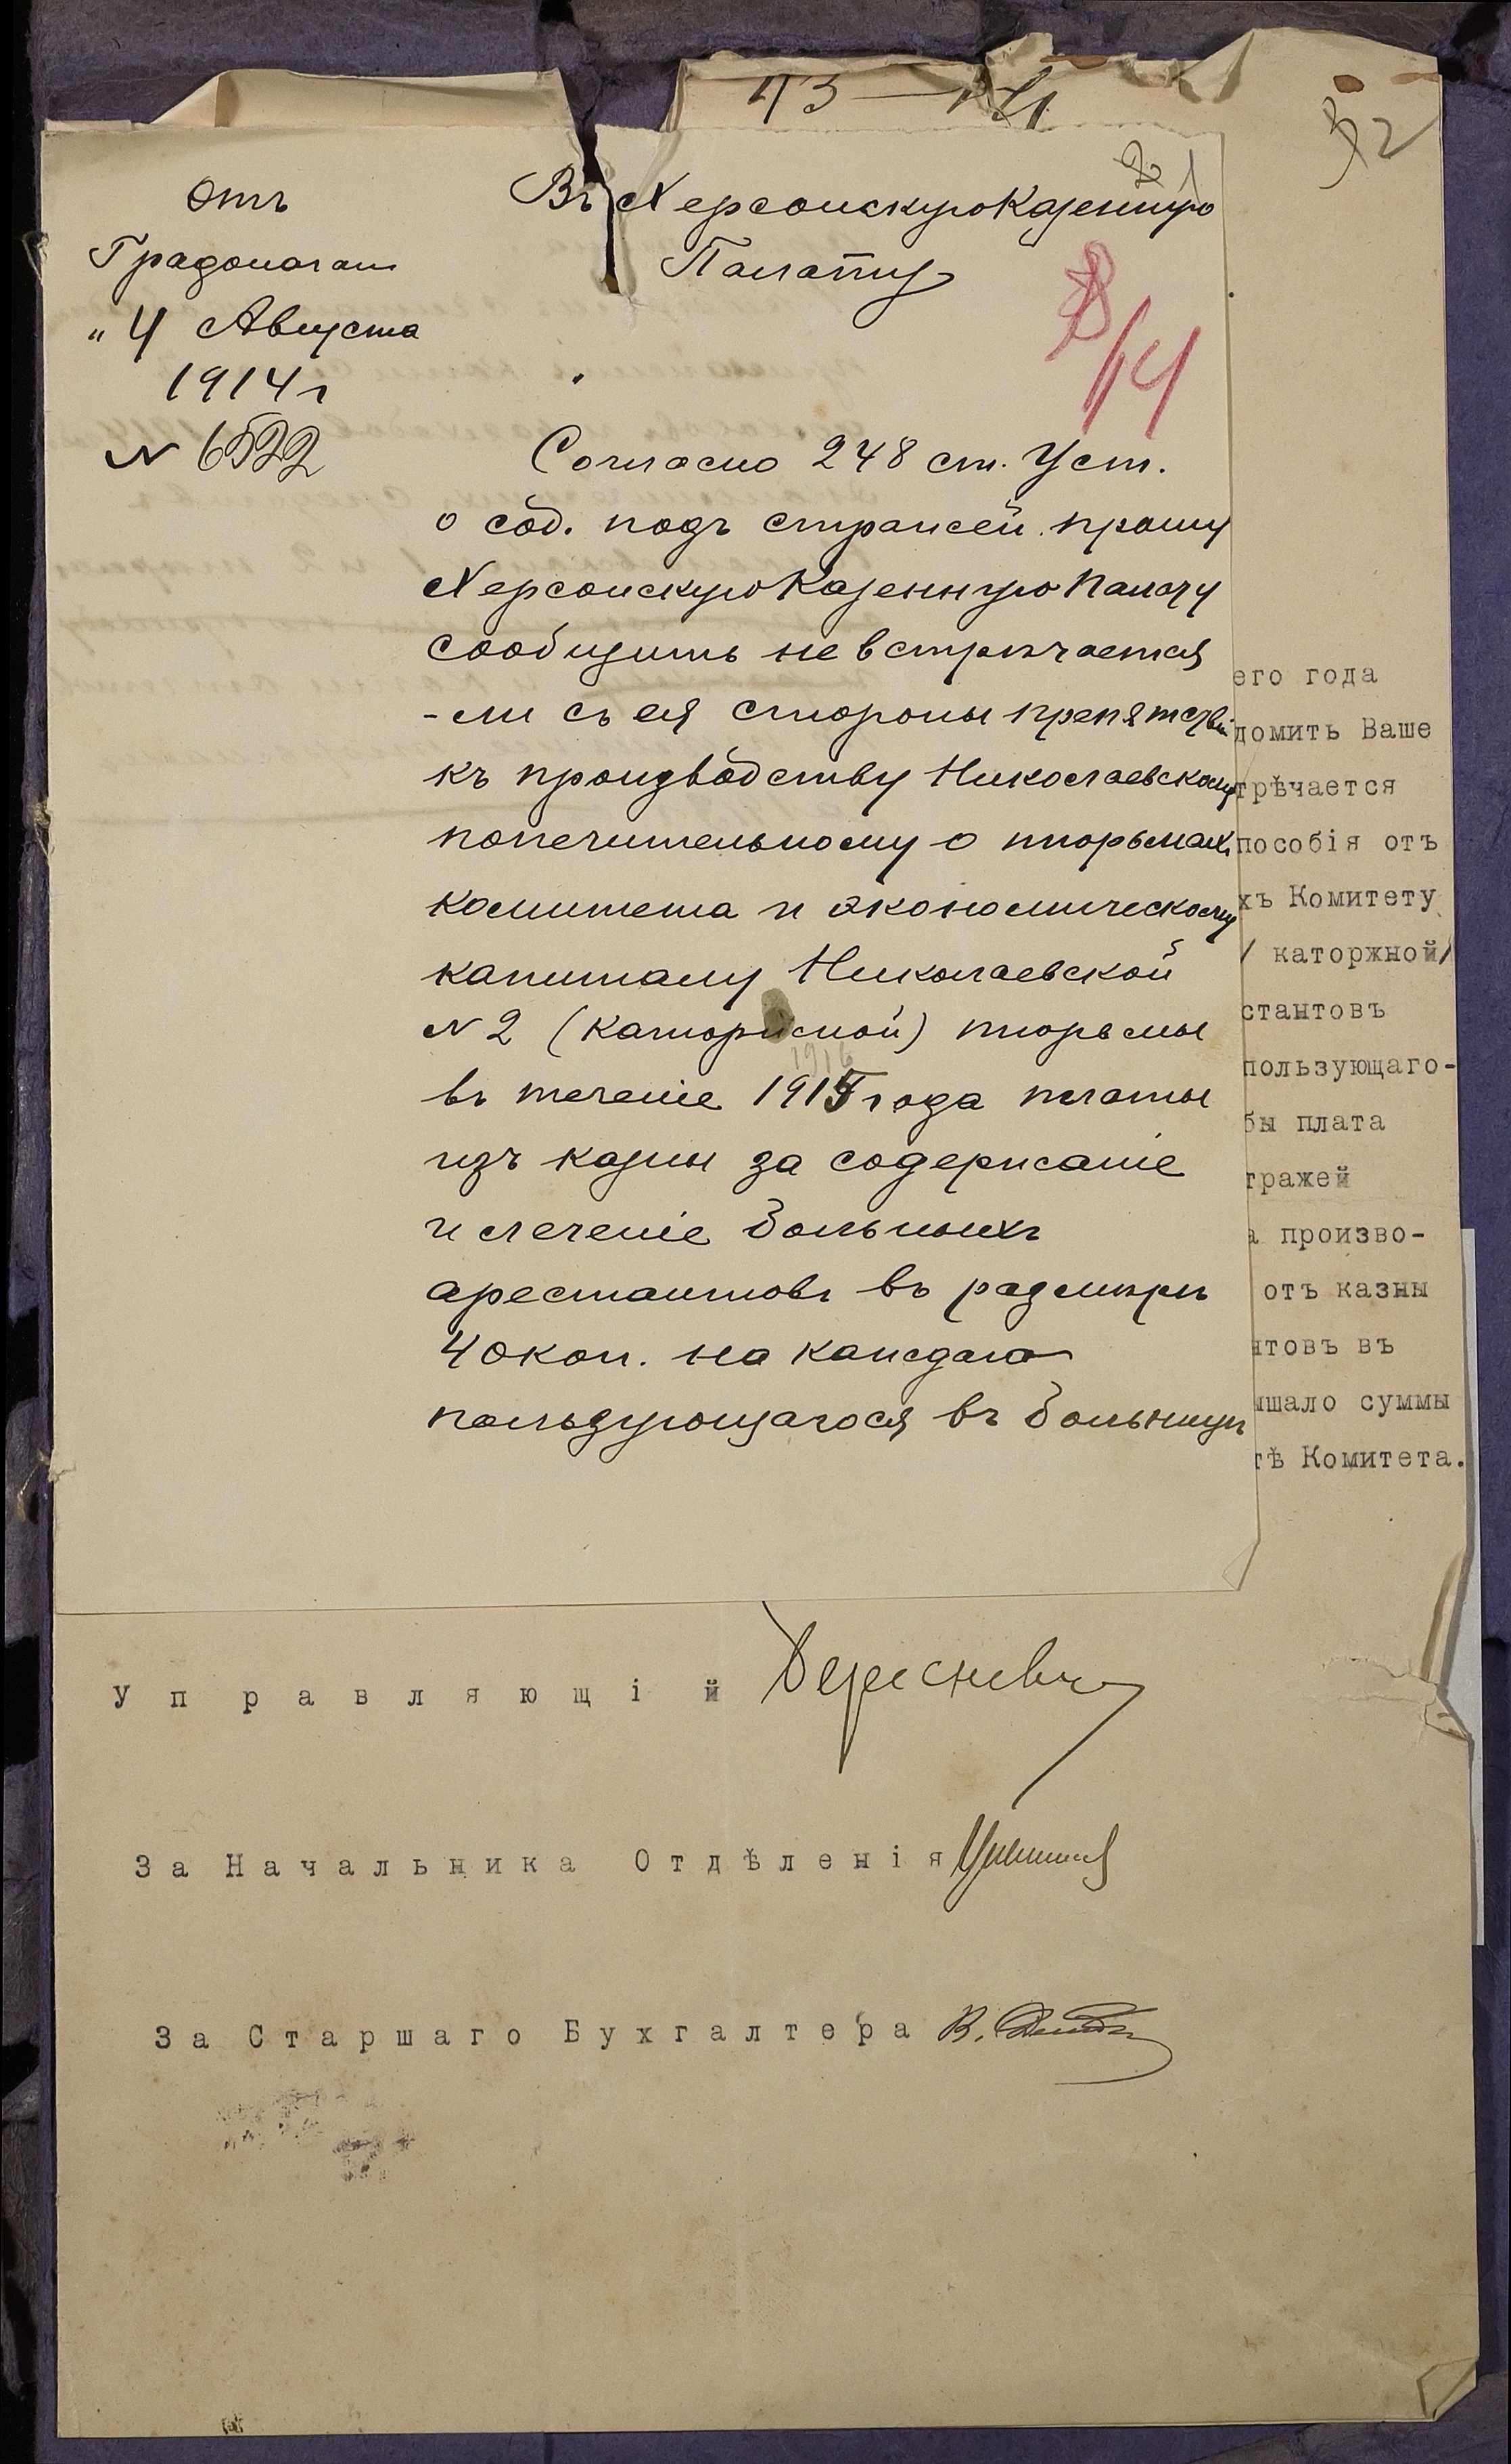 32
отъ
Градоначал
"4 Августа
1914 г
N 6522
Въ Херсонскую Казенную
Палату
8/14
Согласно 248 ст. Уст.
о сод. подъ стражей прошу
Херсонскую Казенную Палату
сообщить не встрѣчается
-ли съ ея стороны препятствій
къ производству Николаевскому
попечительному о тюрьмахъ
комитета и экономическому
капиталу Николаевской
N 2 (каторжной) тюрьмы
въ теченіе 1915 года платы
изъ казны за содержаніе
и леченіе больныхъ
арестантовъ въ размѣрѣ
40 коп. на каждаго
пользующагося въ больницѣ
его года
домить Ваше
трѣчается
пособія отъ
хъ Комитету
/ каторжной/
стантовъ
пользующаго-
бы плата
тражей
а произво-
отъ казны
нтовъ въ
ышало суммы
тѣ Комитета.
Управляющій
За Начальника Отдѣленія
За Старшаго Бухгалтера В.